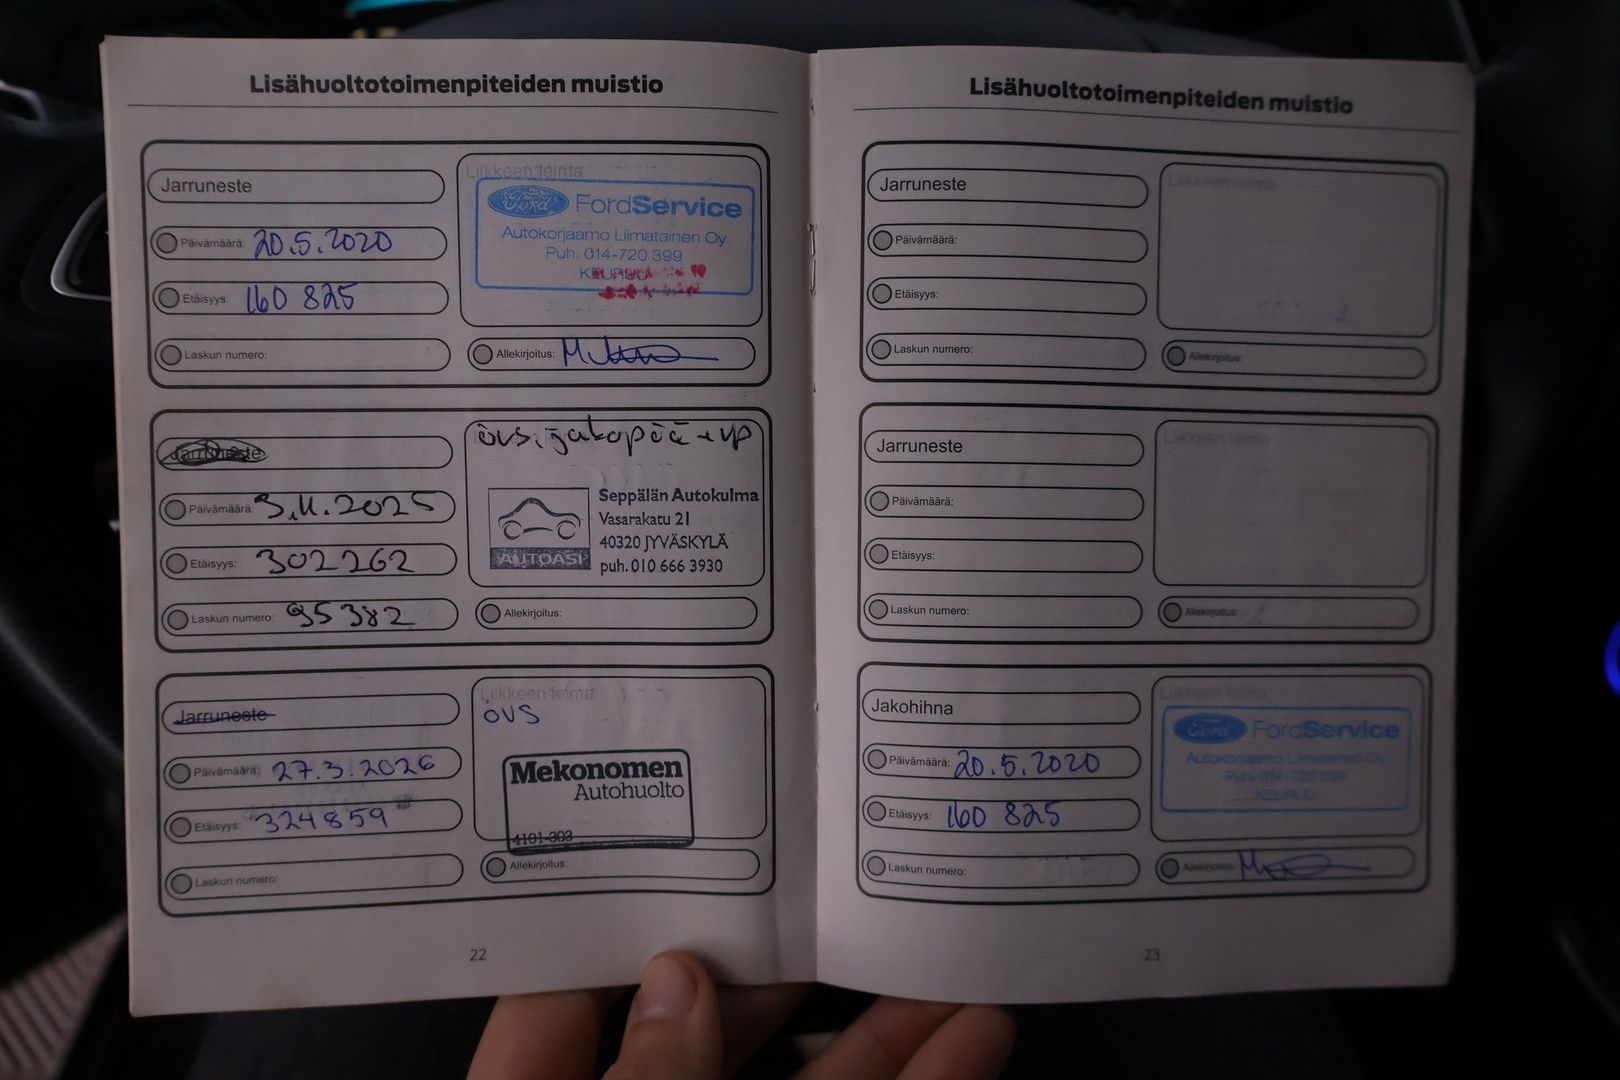 Lisähuoltotoimenpiteiden muistio
Jarruneste
Päivämäärä: 20.5.2020
Etäisyys: 160 825
Laskun numero:
Liikkeen leima
Ford FordService
Autokorjaamo Liimatainen Oy
Puh. 014-720 399
KEURUU
Allekirjoitus:
Jarruneste
Päivämäärä: 3.11.2025
Etäisyys: 302262
Laskun numero: 95382
övs, jakopää + vp
AUTOASI
Seppälän Autokulma
Vasarakatu 21
40320 JYVÄSKYLÄ
puh. 010 666 3930
Allekirjoitus:
Jarruneste
Päivämäärä: 27.3.2026
Etäisyys: 324859
Laskun numero:
Liikkeen leima
övs
Mekonomen
Autohuolto
4101-303
Allekirjoitus:
22
Lisähuoltotoimenpiteiden muistio
Jarruneste
Päivämäärä:
Etäisyys:
Laskun numero:
Liikkeen leima
Allekirjoitus:
Jarruneste
Päivämäärä:
Etäisyys:
Laskun numero:
Liikkeen leima
Allekirjoitus:
Jakohihna
Päivämäärä: 20.5.2020
Etäisyys: 160 825
Laskun numero:
Liikkeen leima
Ford FordService
Autokorjaamo Liimatainen Oy
Puh. 014-720 399
KEURUU
Allekirjoitus:
23